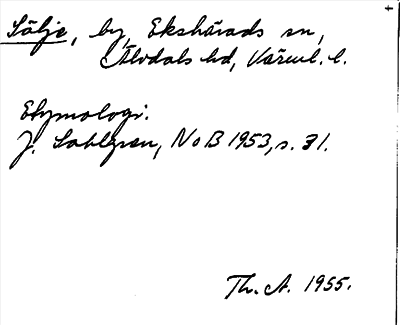 Sälje, by, Ekshärads sn,
Älvdals hd, Värml. l.
Etymologi.
J. Sahlgren, NoB 1953, s. 31.
Th. A. 1955.